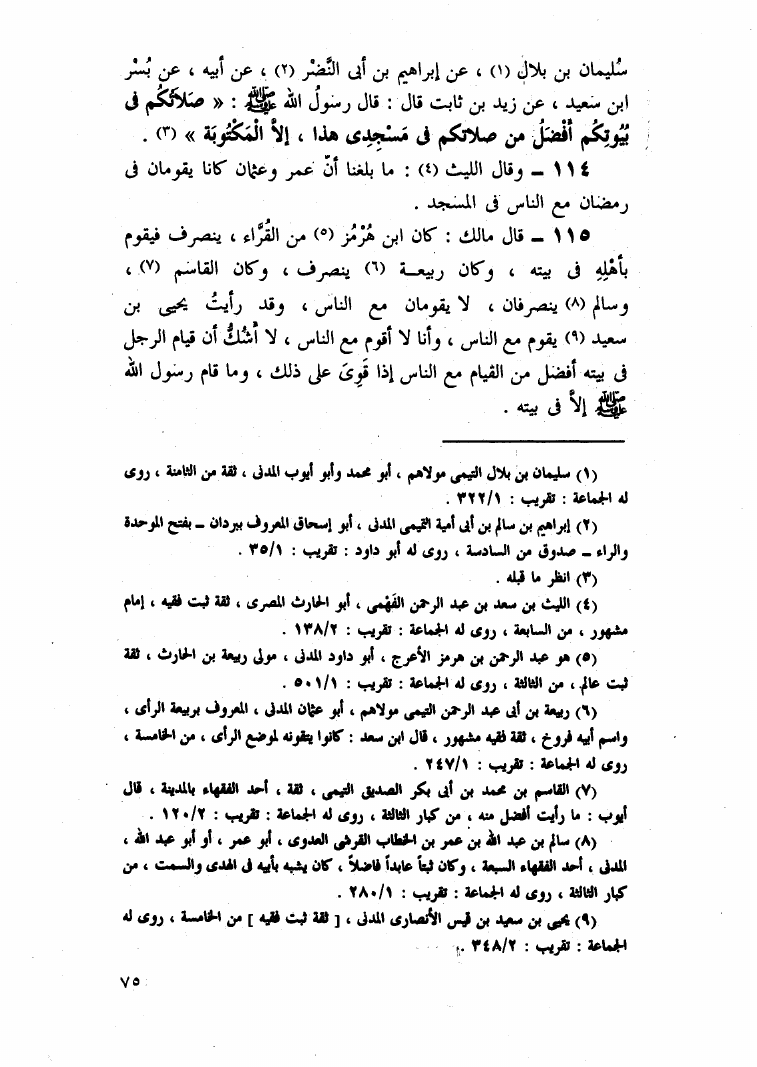 سُليمان بن بلال (١) ، عن إبراهيم بن أبى النَّضْر (٢) ، عن أبيه ، عن بُسْر
ابن سعيد ، عن زيد بن ثابت قال : قال رسولُ الله ﷺ : « صَلاَتُكُم فى
بُيُوتِكُم أَفْضَلُ من صلاتكم فى مَسْجِدِى هذا ، إلاَّ الْمَكْتُوبَة » (٣) .
١١٤ ــ وقال الليث (٤) : ما بلغنا أنّ عمر وعثمان كانا يقومان فى
رمضان مع الناس فى المسجد .
١١٥ ــ قال مالك : كان ابن هُرْمُز (٥) من القُرَّاء ، ينصرف فيقوم
بأهْلِهِ فى بيته ، وكان ربيعـة (٦) ينصرف ، وكان القاسم (٧) ،
وسالم (٨) ينصرفان ، لا يقومان مع الناس ، وقد رأيتُ يحيى بن
سعيد (٩) يقوم مع الناس ، وأنا لا أقوم مع الناس ، لا أَشُكُّ أن قيام الرجل
فى بيته أفضل من القيام مع الناس إذا قَوِىَ على ذلك ، وما قام رسول الله
ﷺ إلاَّ فى بيته .
(١) سليمان بن بلال التيمى مولاهم ، أبو محمد وأبو أيوب المدنى ، ثقة من الثامنة ، روى
له الجماعة : تقريب : ٣٢٢/١ .
(٢) إبراهيم بن سالم بن أبى أمية التيمى المدنى ، أبو إسحاق المعروف ببردان ــ بفتح الموحدة
والراء ــ صدوق من السادسة ، روى له أبو داود : تقريب : ٣٥/١ .
(٣) انظر ما قبله .
(٤) الليث بن سعد بن عبد الرحمن الفَهْمى ، أبو الحارث المصرى ، ثقة ثبت فقيه ، إمام
مشهور ، من السابعة ، روى له الجماعة : تقريب : ١٣٨/٢ .
(٥) هو عبد الرحمن بن هرمز الأعرج ، أبو داود المدنى ، مولى ربيعة بن الحارث ، ثقة
ثبت عالم ، من الثالثة ، روى له الجماعة : تقريب : ٥٠١/١ .
(٦) ربيعة بن أبى عبد الرحمن التيمى مولاهم ، أبو عثمان المدنى ، المعروف بربيعة الرأى ،
واسم أبيه فروخ ، ثقة فقيه مشهور ، قال ابن سعد : كانوا يتقونه لموضع الرأى ، من الخامسة ،
روى له الجماعة : تقريب : ٢٤٧/١ .
(٧) القاسم بن محمد بن أبى بكر الصديق التيمى ، ثقة ، أحد الفقهاء بالمدينة ، قال
أيوب : ما رأيت أفضل منه ، من كبار الثالثة ، روى له الجماعة : تقريب : ١٢٠/٢ .
(٨) سالم بن عبد الله بن عمر بن الخطاب القرشى العدوى ، أبو عمر ، أو أبو عبد الله ،
المدنى ، أحد الفقهاء السبعة ، وكان ثبتاً عابداً فاضلاً ، كان يشبه بأبيه فى الهدى والسمت ، من
كبار الثالثة ، روى له الجماعة : تقريب : ٢٨٠/١ .
(٩) يحيى بن سعيد بن قيس الأنصارى المدنى ، [ ثقة ثبت فقيه ] من الخامسة ، روى له
الجماعة : تقريب : ٣٤٨/٢ .
٧٥